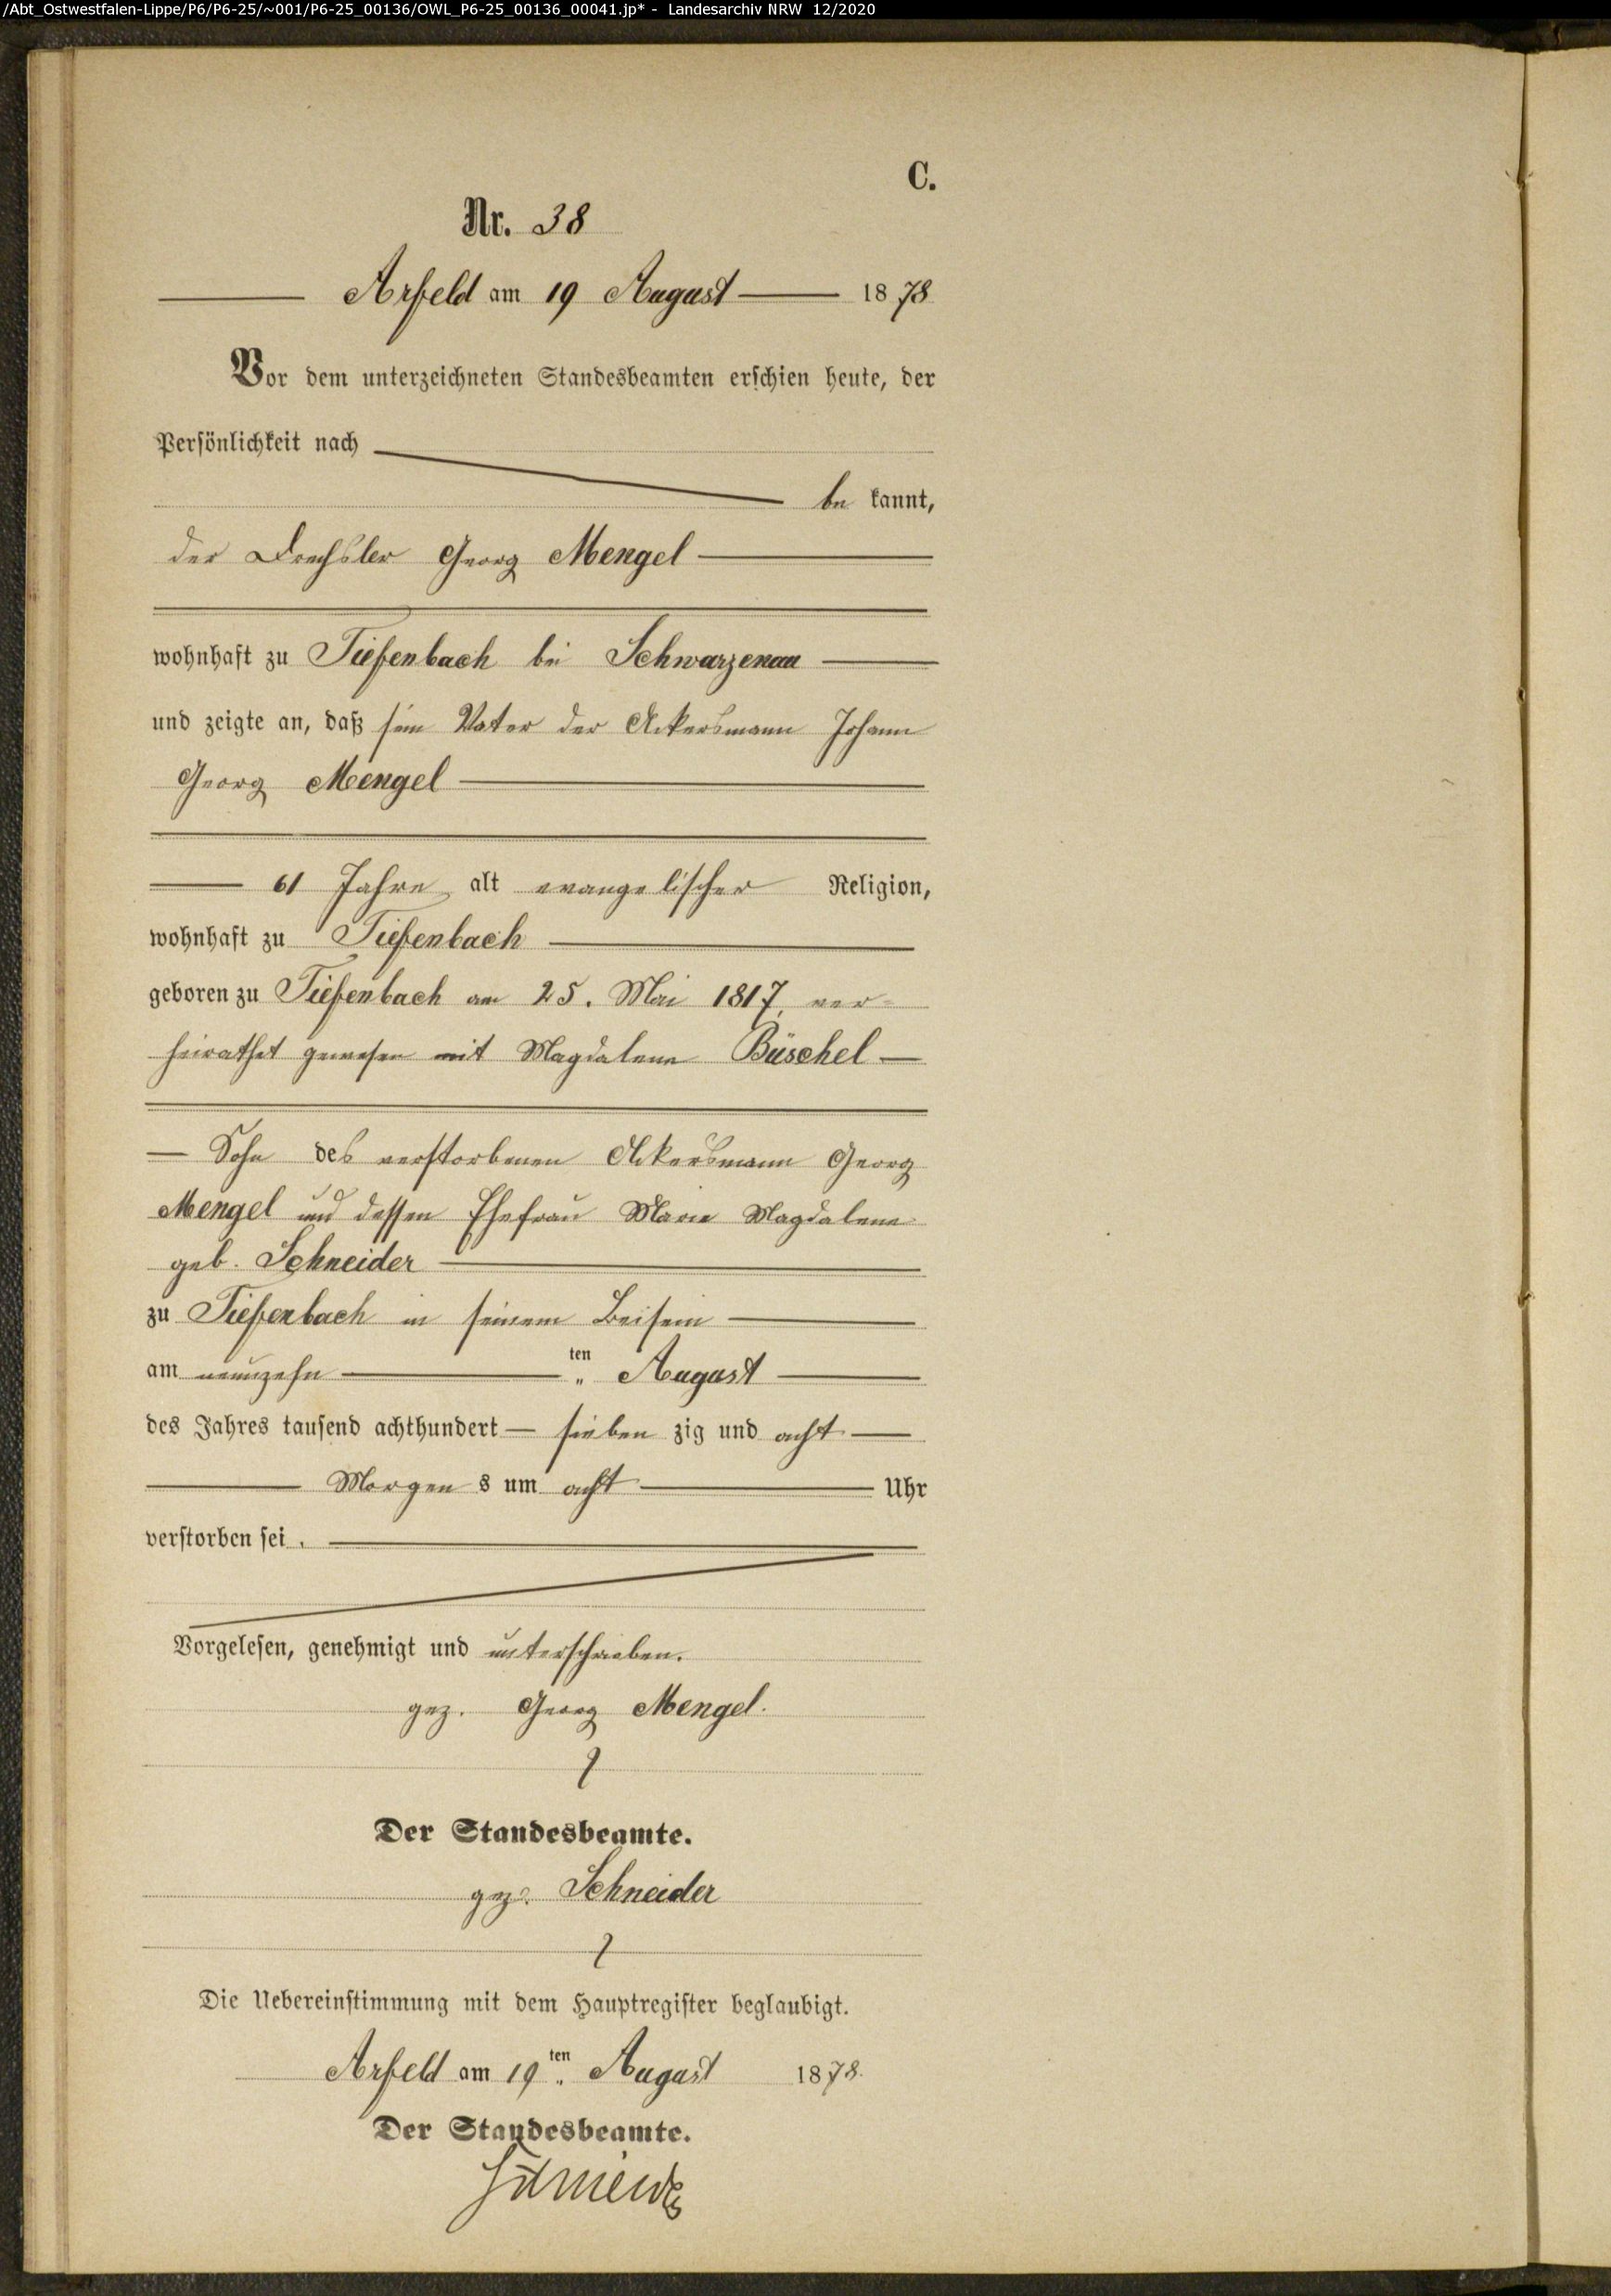 /Abt_Ostwestfalen-Lippe/P6/P6-25/~001/P6-25_00136/OWL_P6-25_00136_00041.jp* - Landesarchiv NRW 12/2020
C.
Nr. 38
Arfeld am 19 August 1878
Vor dem unterzeichneten Standesbeamten erschien heute, der
Persönlichkeit nach
be kannt,
der Drechsler Georg Mengel
wohnhaft zu Tiefenbach bei Schwarzenau
und zeigte an, daß sein Vater der Ackersmann Johann
Georg Mengel
61 Jahre alt evangelischer Religion,
wohnhaft zu Tiefenbach
geboren zu Tiefenbach am 25. Mai 1817, ver-
heirathet gewesen mit Magdalene Büschel
Sohn des verstorbenen Ackersmann Georg
Mengel und dessen Ehefrau Marie Magdalene
geb. Schneider
zu Tiefenbach in seinem Beisein
am neunzehn ten August
des Jahres tausend achthundert sieben zig und acht
Morgen s um acht Uhr
verstorben sei.
Vorgelesen, genehmigt und unterschrieben.
gez. Georg Mengel.
Der Standesbeamte.
gez. Schneider
Die Uebereinstimmung mit dem Hauptregister beglaubigt.
Arfeld am 19ten August 1878.
Der Standesbeamte.
Schneider